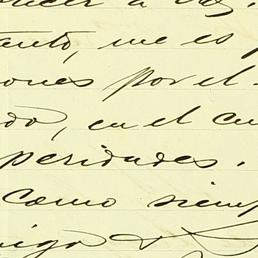 tanto, me es
ones por el
do, en el
peridades.
como siem
migo